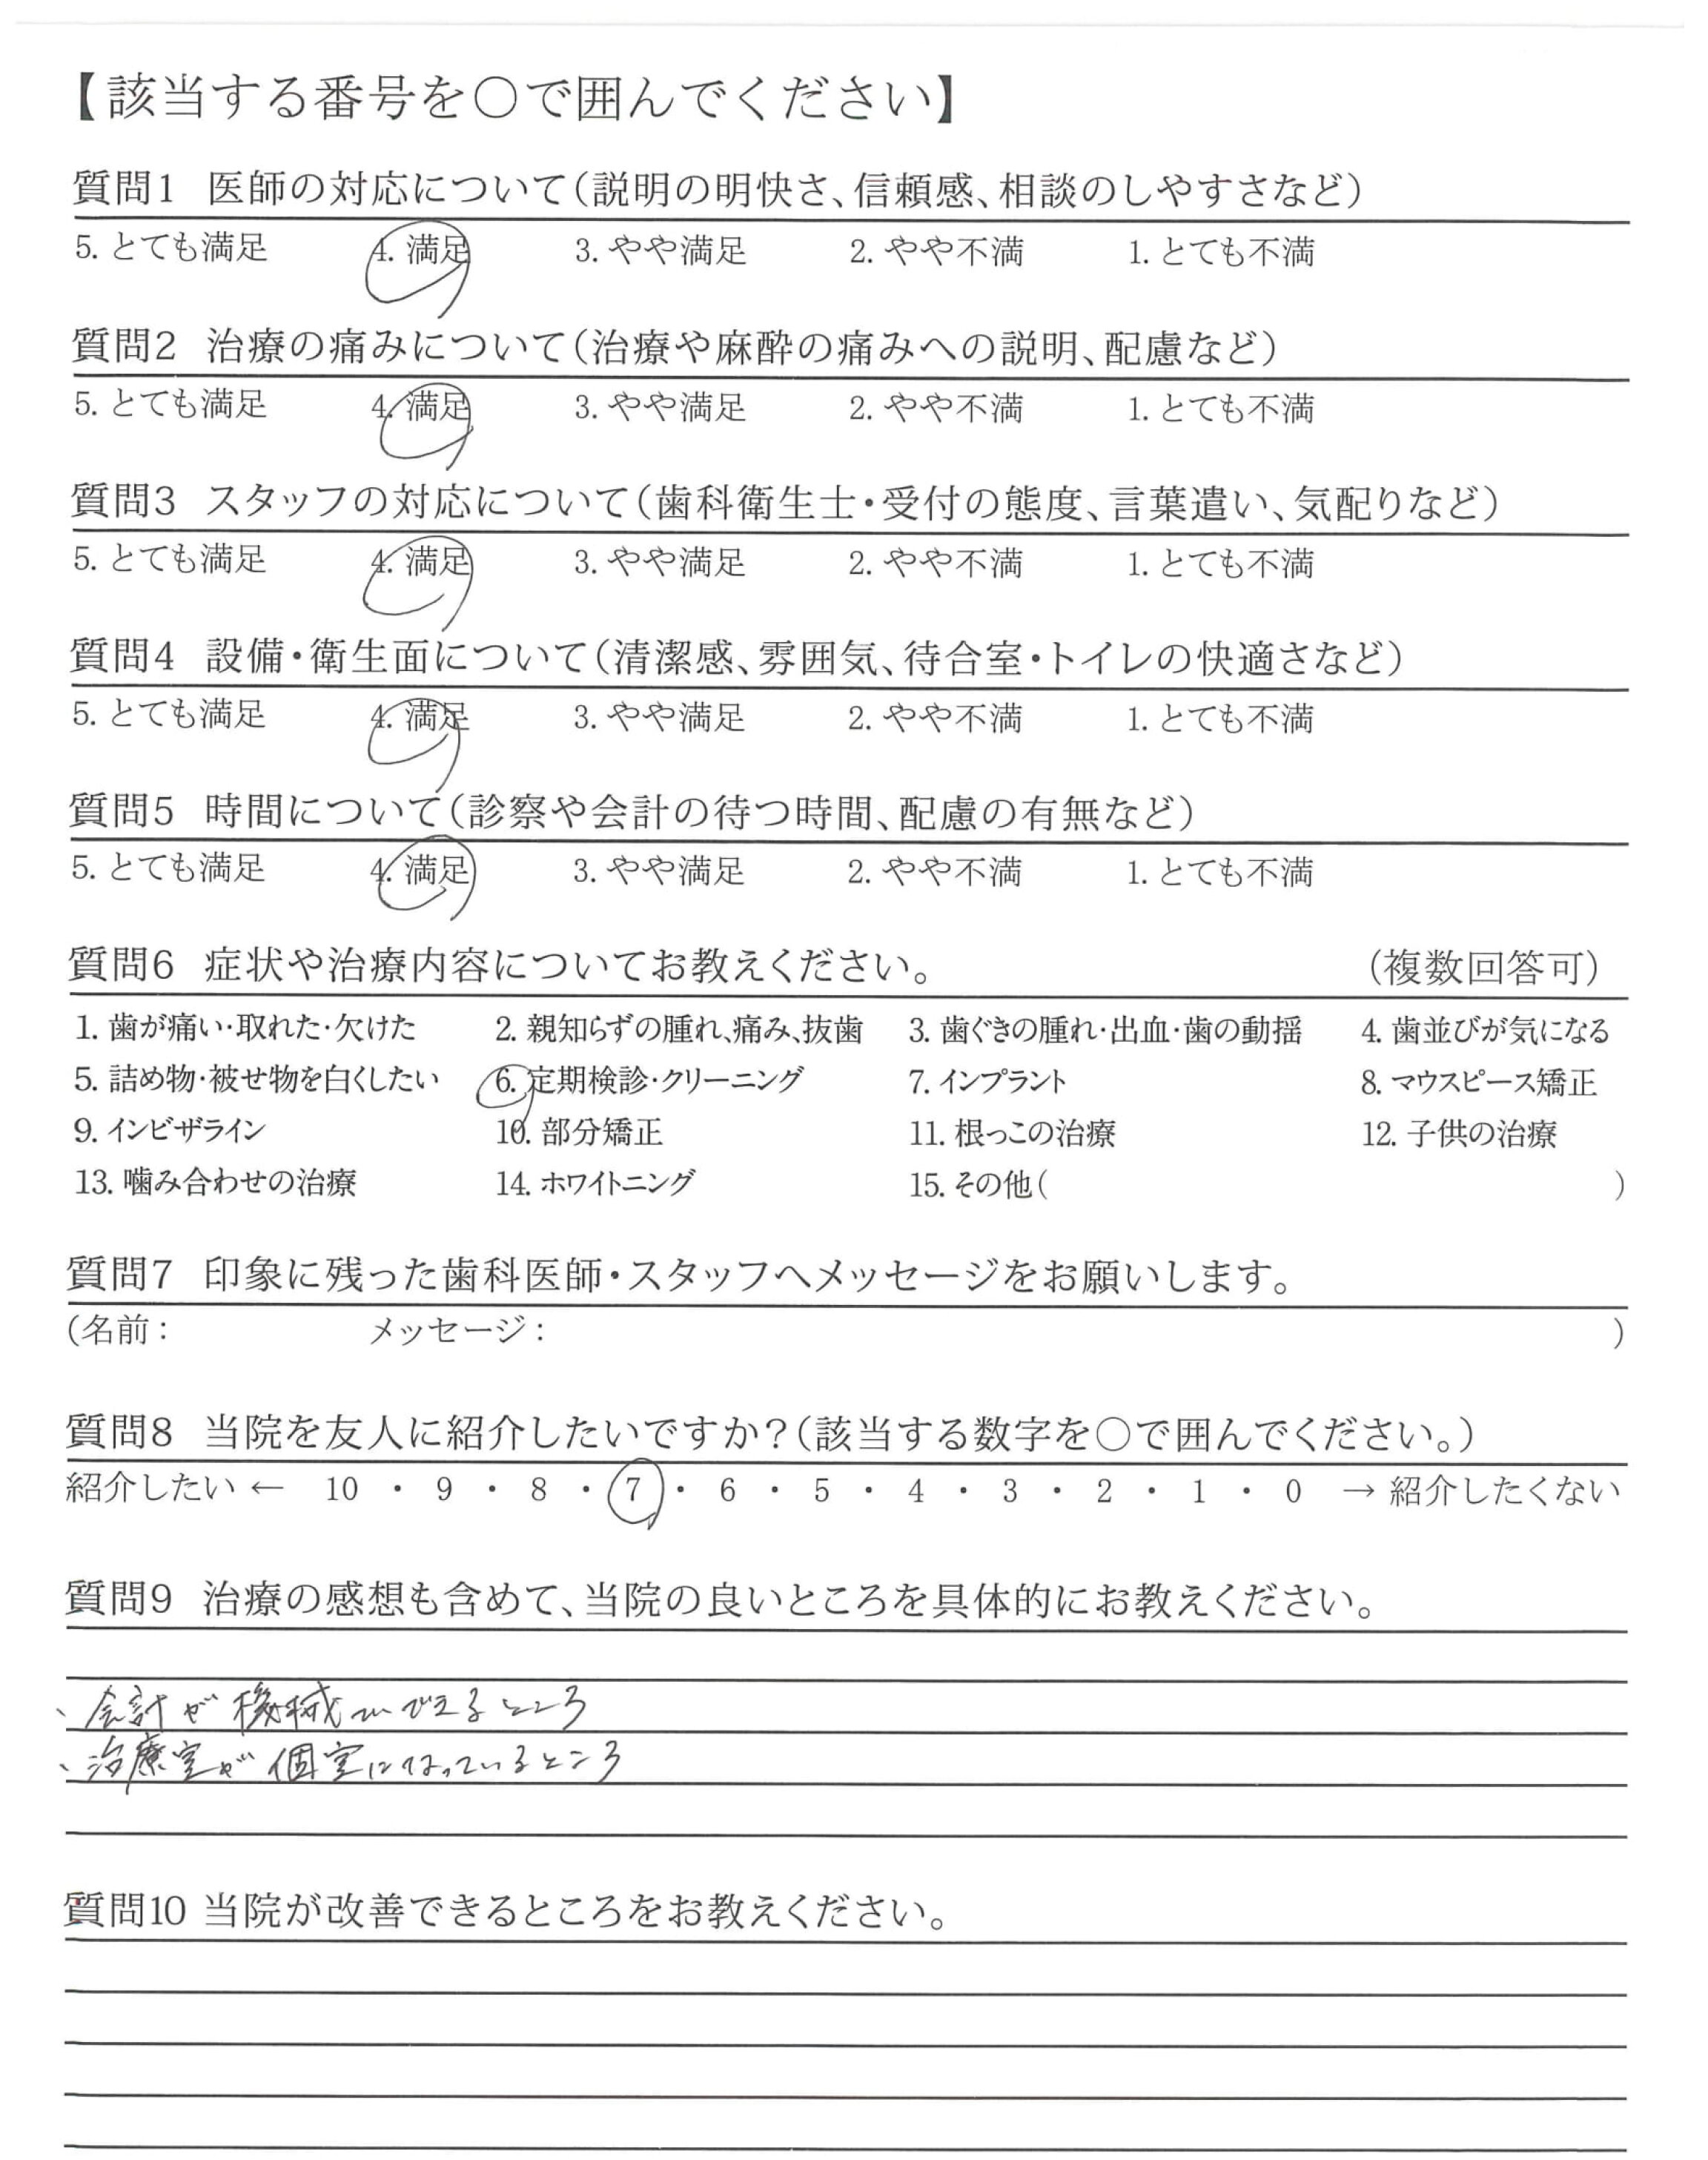 【該当する番号を○で囲んでください】
質問1 医師の対応について(説明の明快さ、信頼感、相談のしやすさなど)
5. とても満足 4. 満足 3. やや満足 2. やや不満 1. とても不満
質問2 治療の痛みについて(治療や麻酔の痛みへの説明、配慮など)
5. とても満足 4. 満足 3. やや満足 2. やや不満 1. とても不満
質問3 スタッフの対応について(歯科衛生士・受付の態度、言葉遣い、気配りなど)
5. とても満足 4. 満足 3. やや満足 2. やや不満 1. とても不満
質問4 設備・衛生面について(清潔感、雰囲気、待合室・トイレの快適さなど)
5. とても満足 4. 満足 3. やや満足 2. やや不満 1. とても不満
質問5 時間について(診察や会計の待つ時間、配慮の有無など)
5. とても満足 4. 満足 3. やや満足 2. やや不満 1. とても不満
質問6 症状や治療内容についてお教えください。 (複数回答可)
1. 歯が痛い・取れた・欠けた 2. 親知らずの腫れ、痛み、抜歯 3. 歯ぐきの腫れ・出血・歯の動揺 4. 歯並びが気になる
5. 詰め物・被せ物を白くしたい 6. 定期検診・クリーニング 7. インプラント 8. マウスピース矯正
9. インビザライン 10. 部分矯正 11. 根っこの治療 12. 子供の治療
13. 噛み合わせの治療 14. ホワイトニング 15. その他( )
質問7 印象に残った歯科医師・スタッフへメッセージをお願いします。
(名前: メッセージ: )
質問8 当院を友人に紹介したいですか?(該当する数字を○で囲んでください。)
紹介したい ← 10 ・ 9 ・ 8 ・ 7 ・ 6 ・ 5 ・ 4 ・ 3 ・ 2 ・ 1 ・ 0 → 紹介したくない
質問9 治療の感想も含めて、当院の良いところを具体的にお教えください。
、会計が機械でできるところ
、治療室が個室になっているところ
質問10 当院が改善できるところをお教えください。